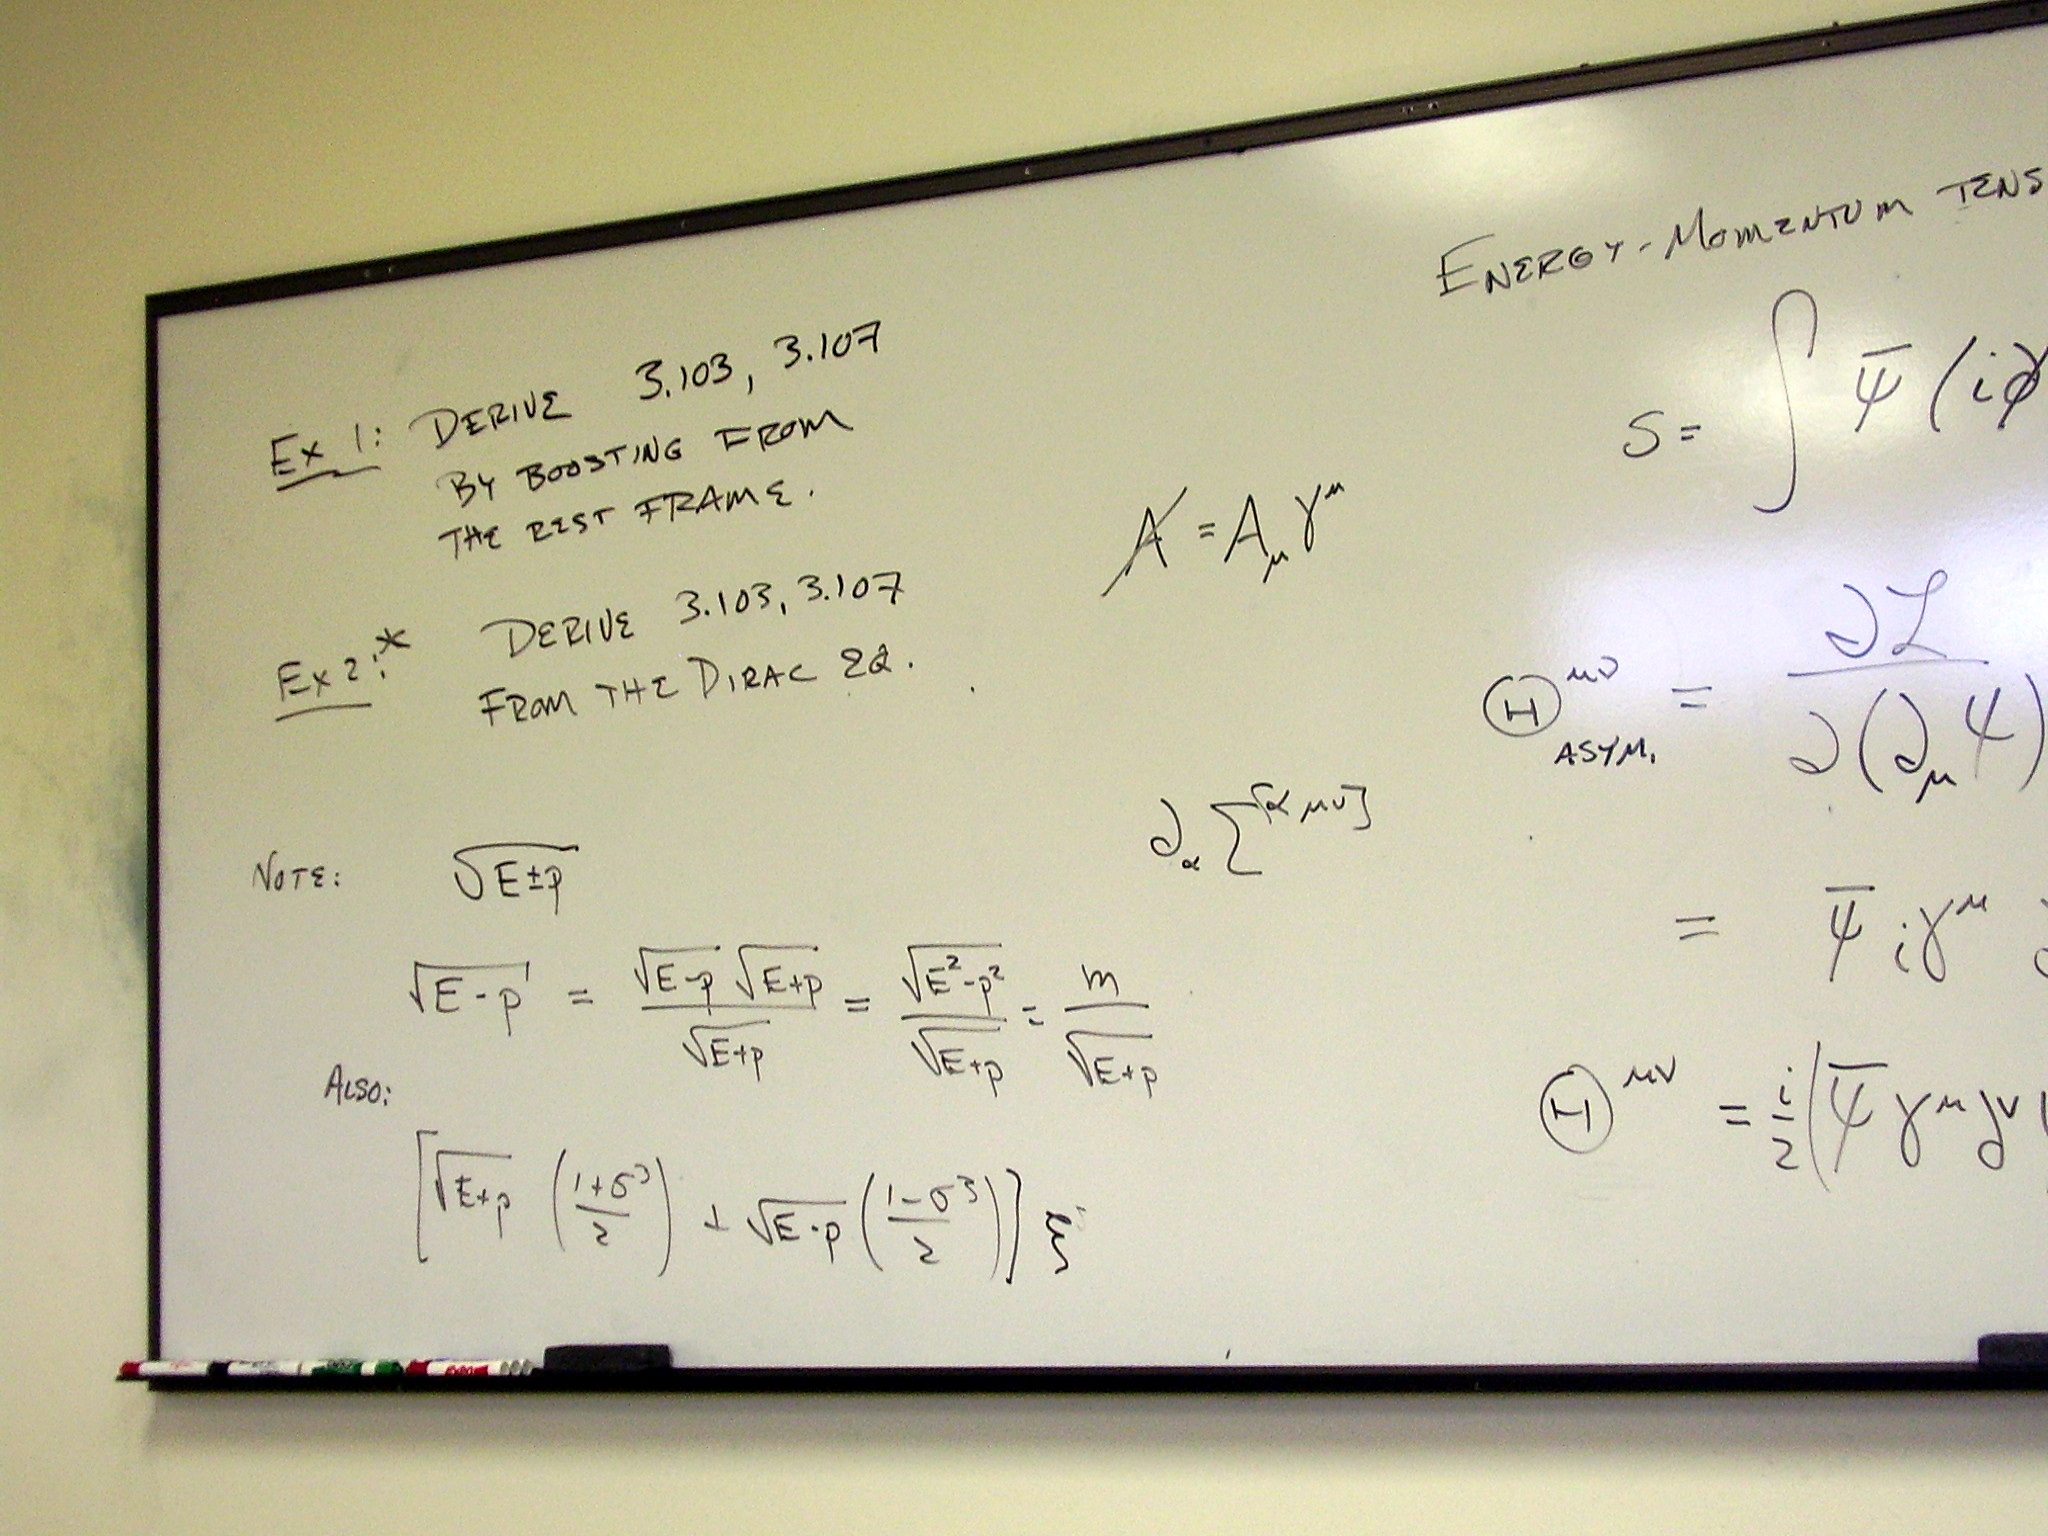 Ex 1: DERIVE 3.103, 3.107
BY BOOSTING FROM
THE REST FRAME.
Ex 2:* DERIVE 3.103, 3.107
FROM THE DIRAC EQ.
NOTE: √(E±p)
√(E-p) = √(E-p) √(E+p) / √(E+p) = √(E²-p²) / √(E+p) = m / √(E+p)
ALSO:
[√(E+p) ((1+σ³)/2) + √(E-p) ((1-σ³)/2)]
A̸ = A_μ γ^μ
∂_α Σ^[α μν]
ENERGY-MOMENTUM TENS
S = ∫ ψ̄ (i∂̸
Θ^μν ASYM. = ∂ℒ / ∂(∂_μ ψ)
= ψ̄ iγ^μ
Θ^μν = i/2 (ψ̄ γ^μ ∂^ν